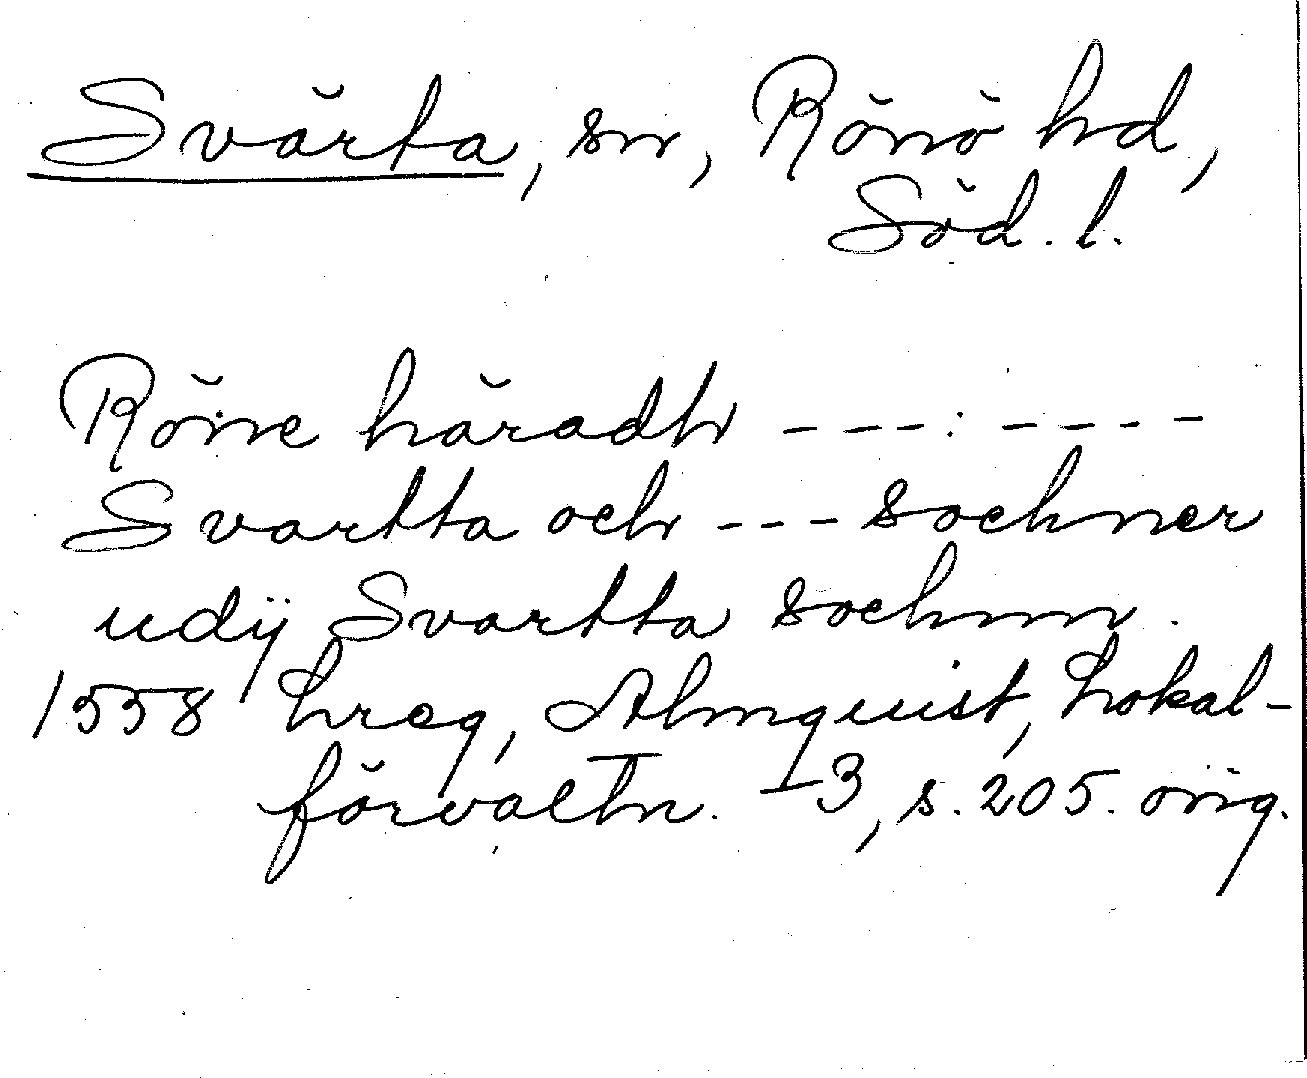 Svärta, sn, Rönö hd,
Söd. l.
Röne häradh ---:----
Svartta och --- sochner
udij Svartta sochnn.
1558 hreg, Almquist, Lokal-
förvaltn. I 3, s. 205. orig.